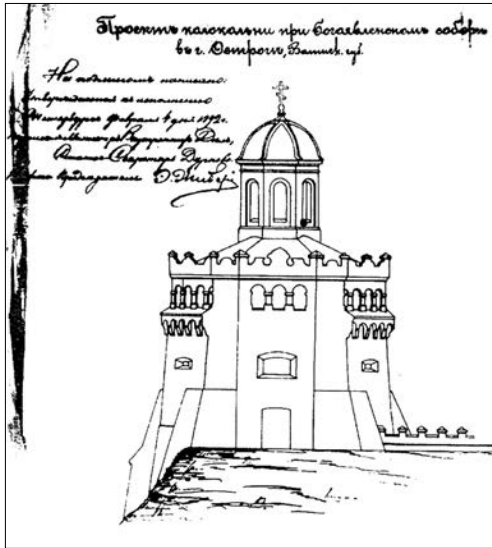 Проектъ колокальни при Богоявленскомъ соборѣ
въ г. Острогѣ, Волынск. губ.
На подлинномъ написано:
Утверждается къ исполненію
февраля 4 дня 1892 г.
Министръ Внутреннихъ Дѣлъ,
Секретарь Дурново
Предсѣдатель Э. Жиберъ